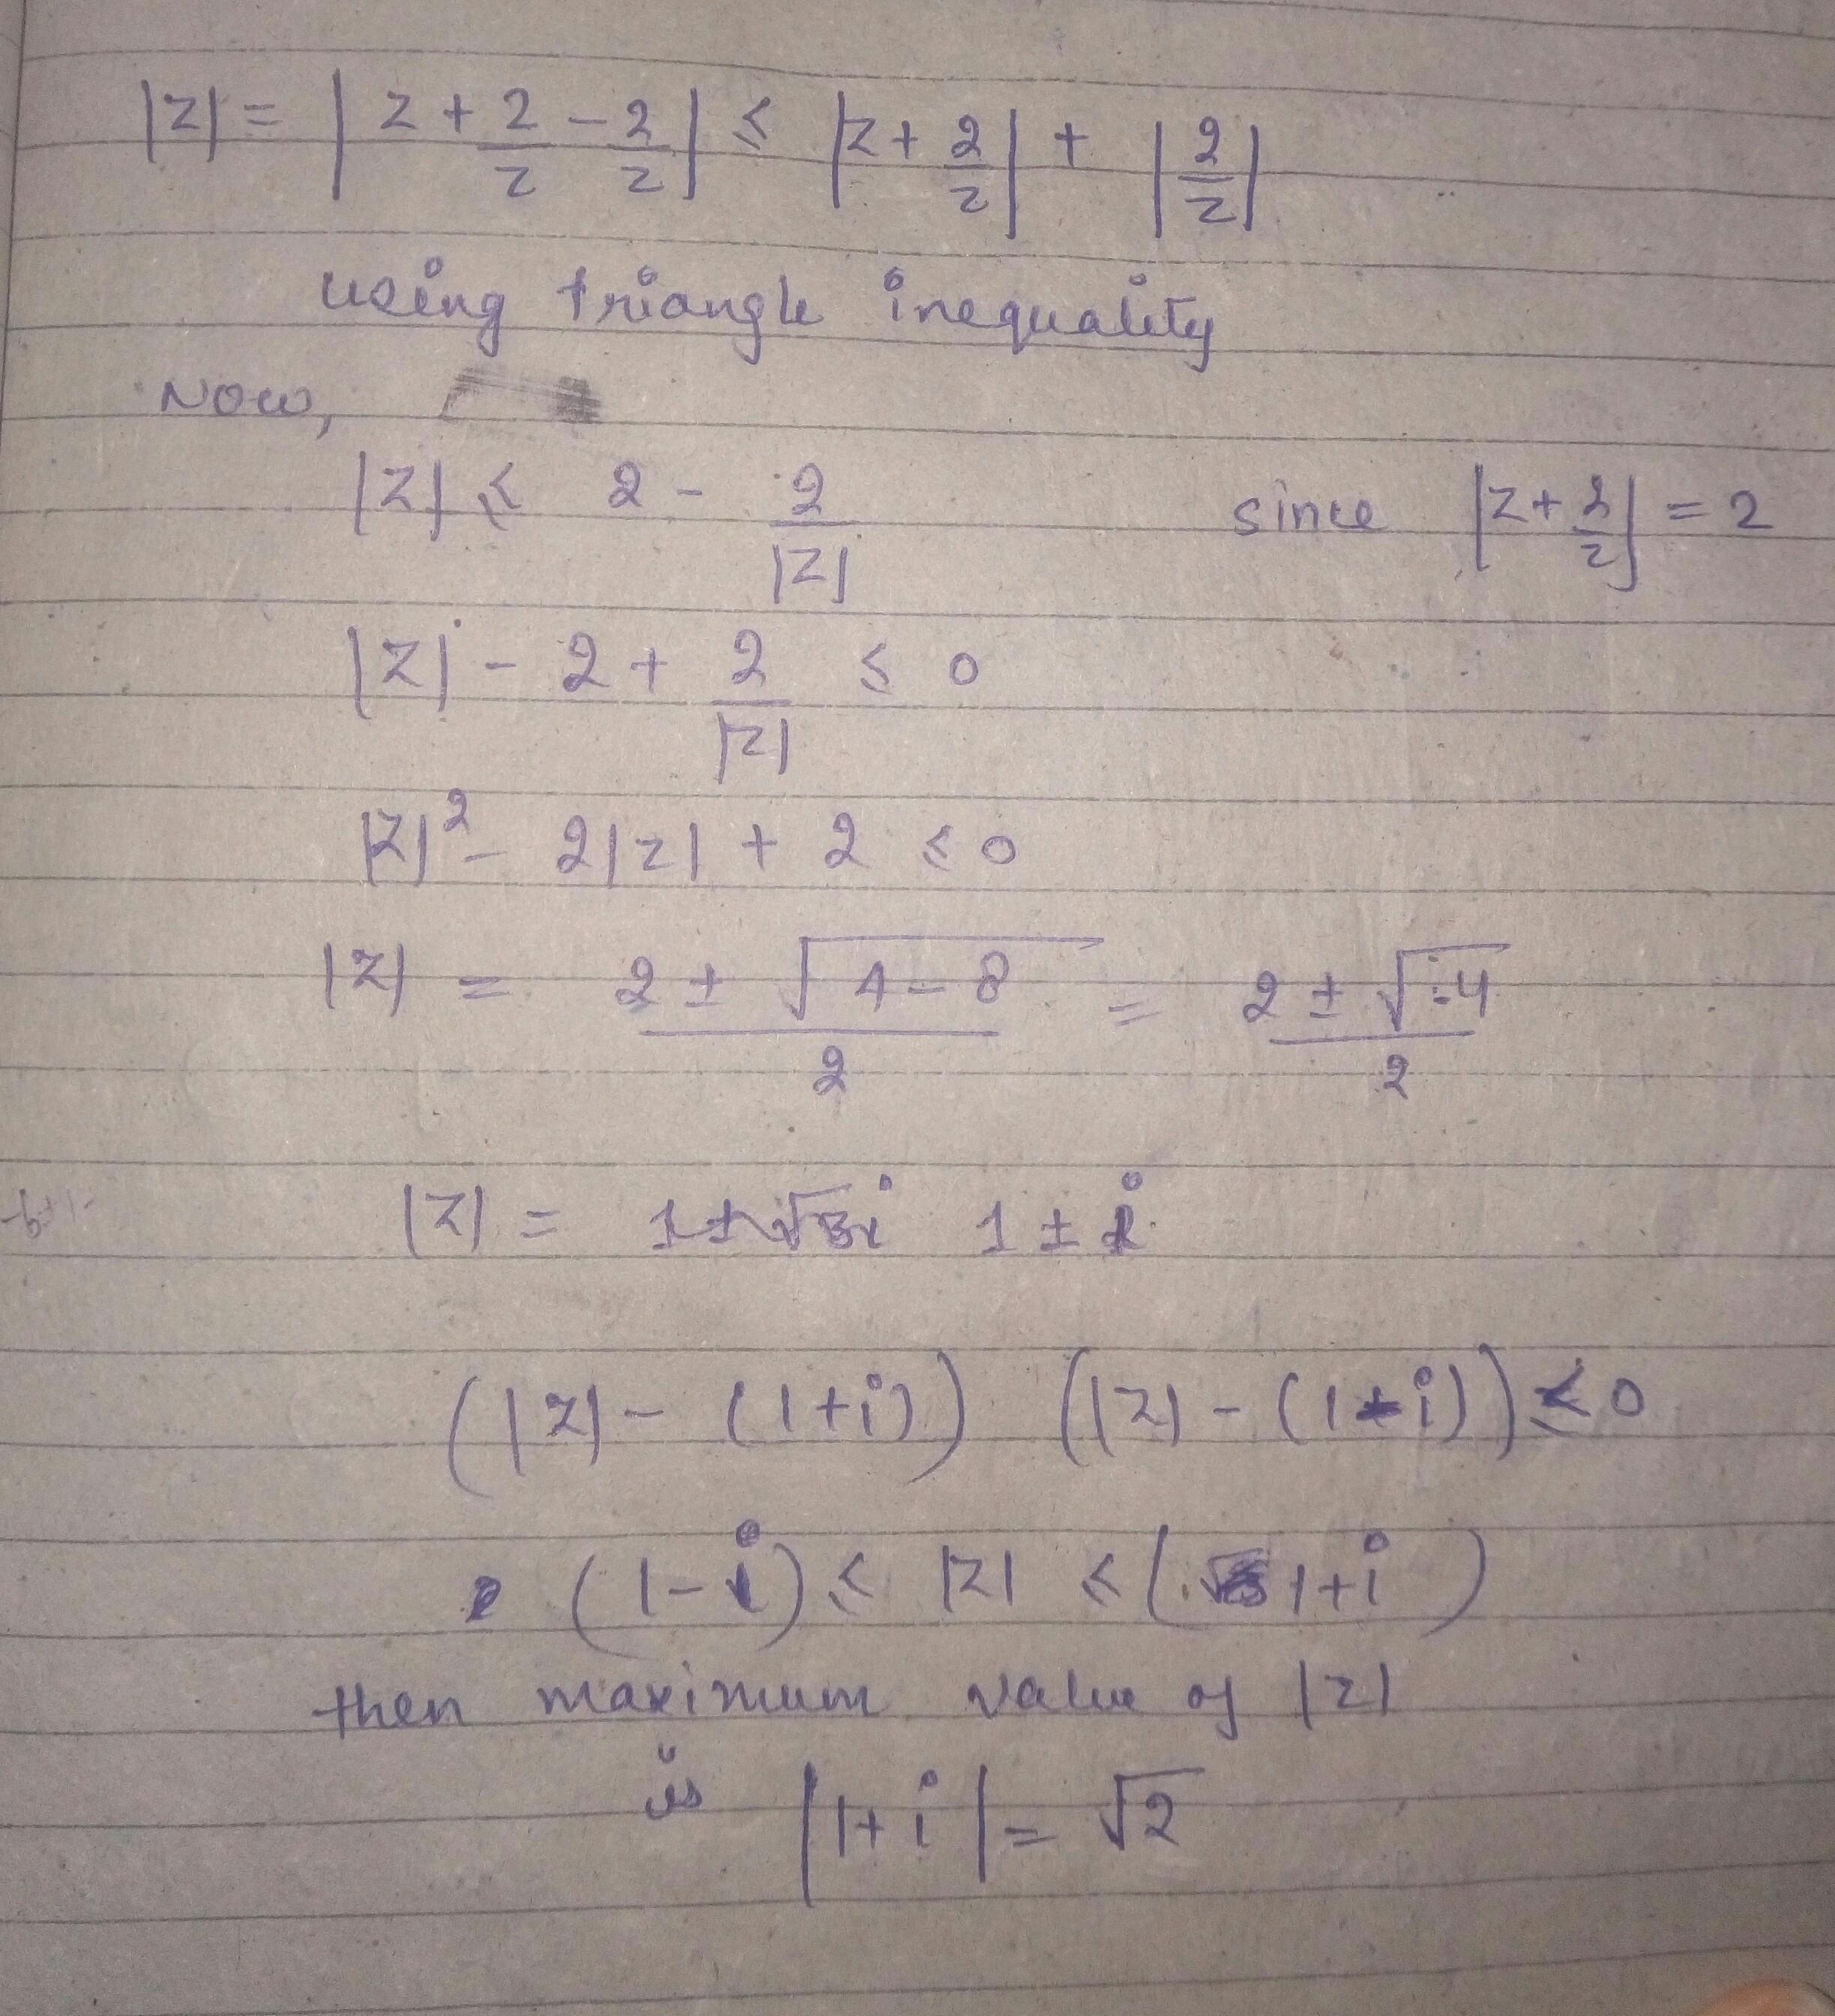 |z| = | z + 2/z - 2/z | ≤ |z + 2/z| + |2/z|
using triangle inequality
Now,
|z| ≤ 2 - 2/|z| since |z + 2/z| = 2
|z| - 2 + 2/|z| ≤ 0
|z|² - 2|z| + 2 ≤ 0
|z| = (2 ± √(4 - 8))/2 = (2 ± √-4)/2
|z| = 1 ± i
(|z| - (1+i)) (|z| - (1-i)) ≤ 0
(1-i) ≤ |z| ≤ (1+i)
then maximum value of |z|
is |1+i| = √2